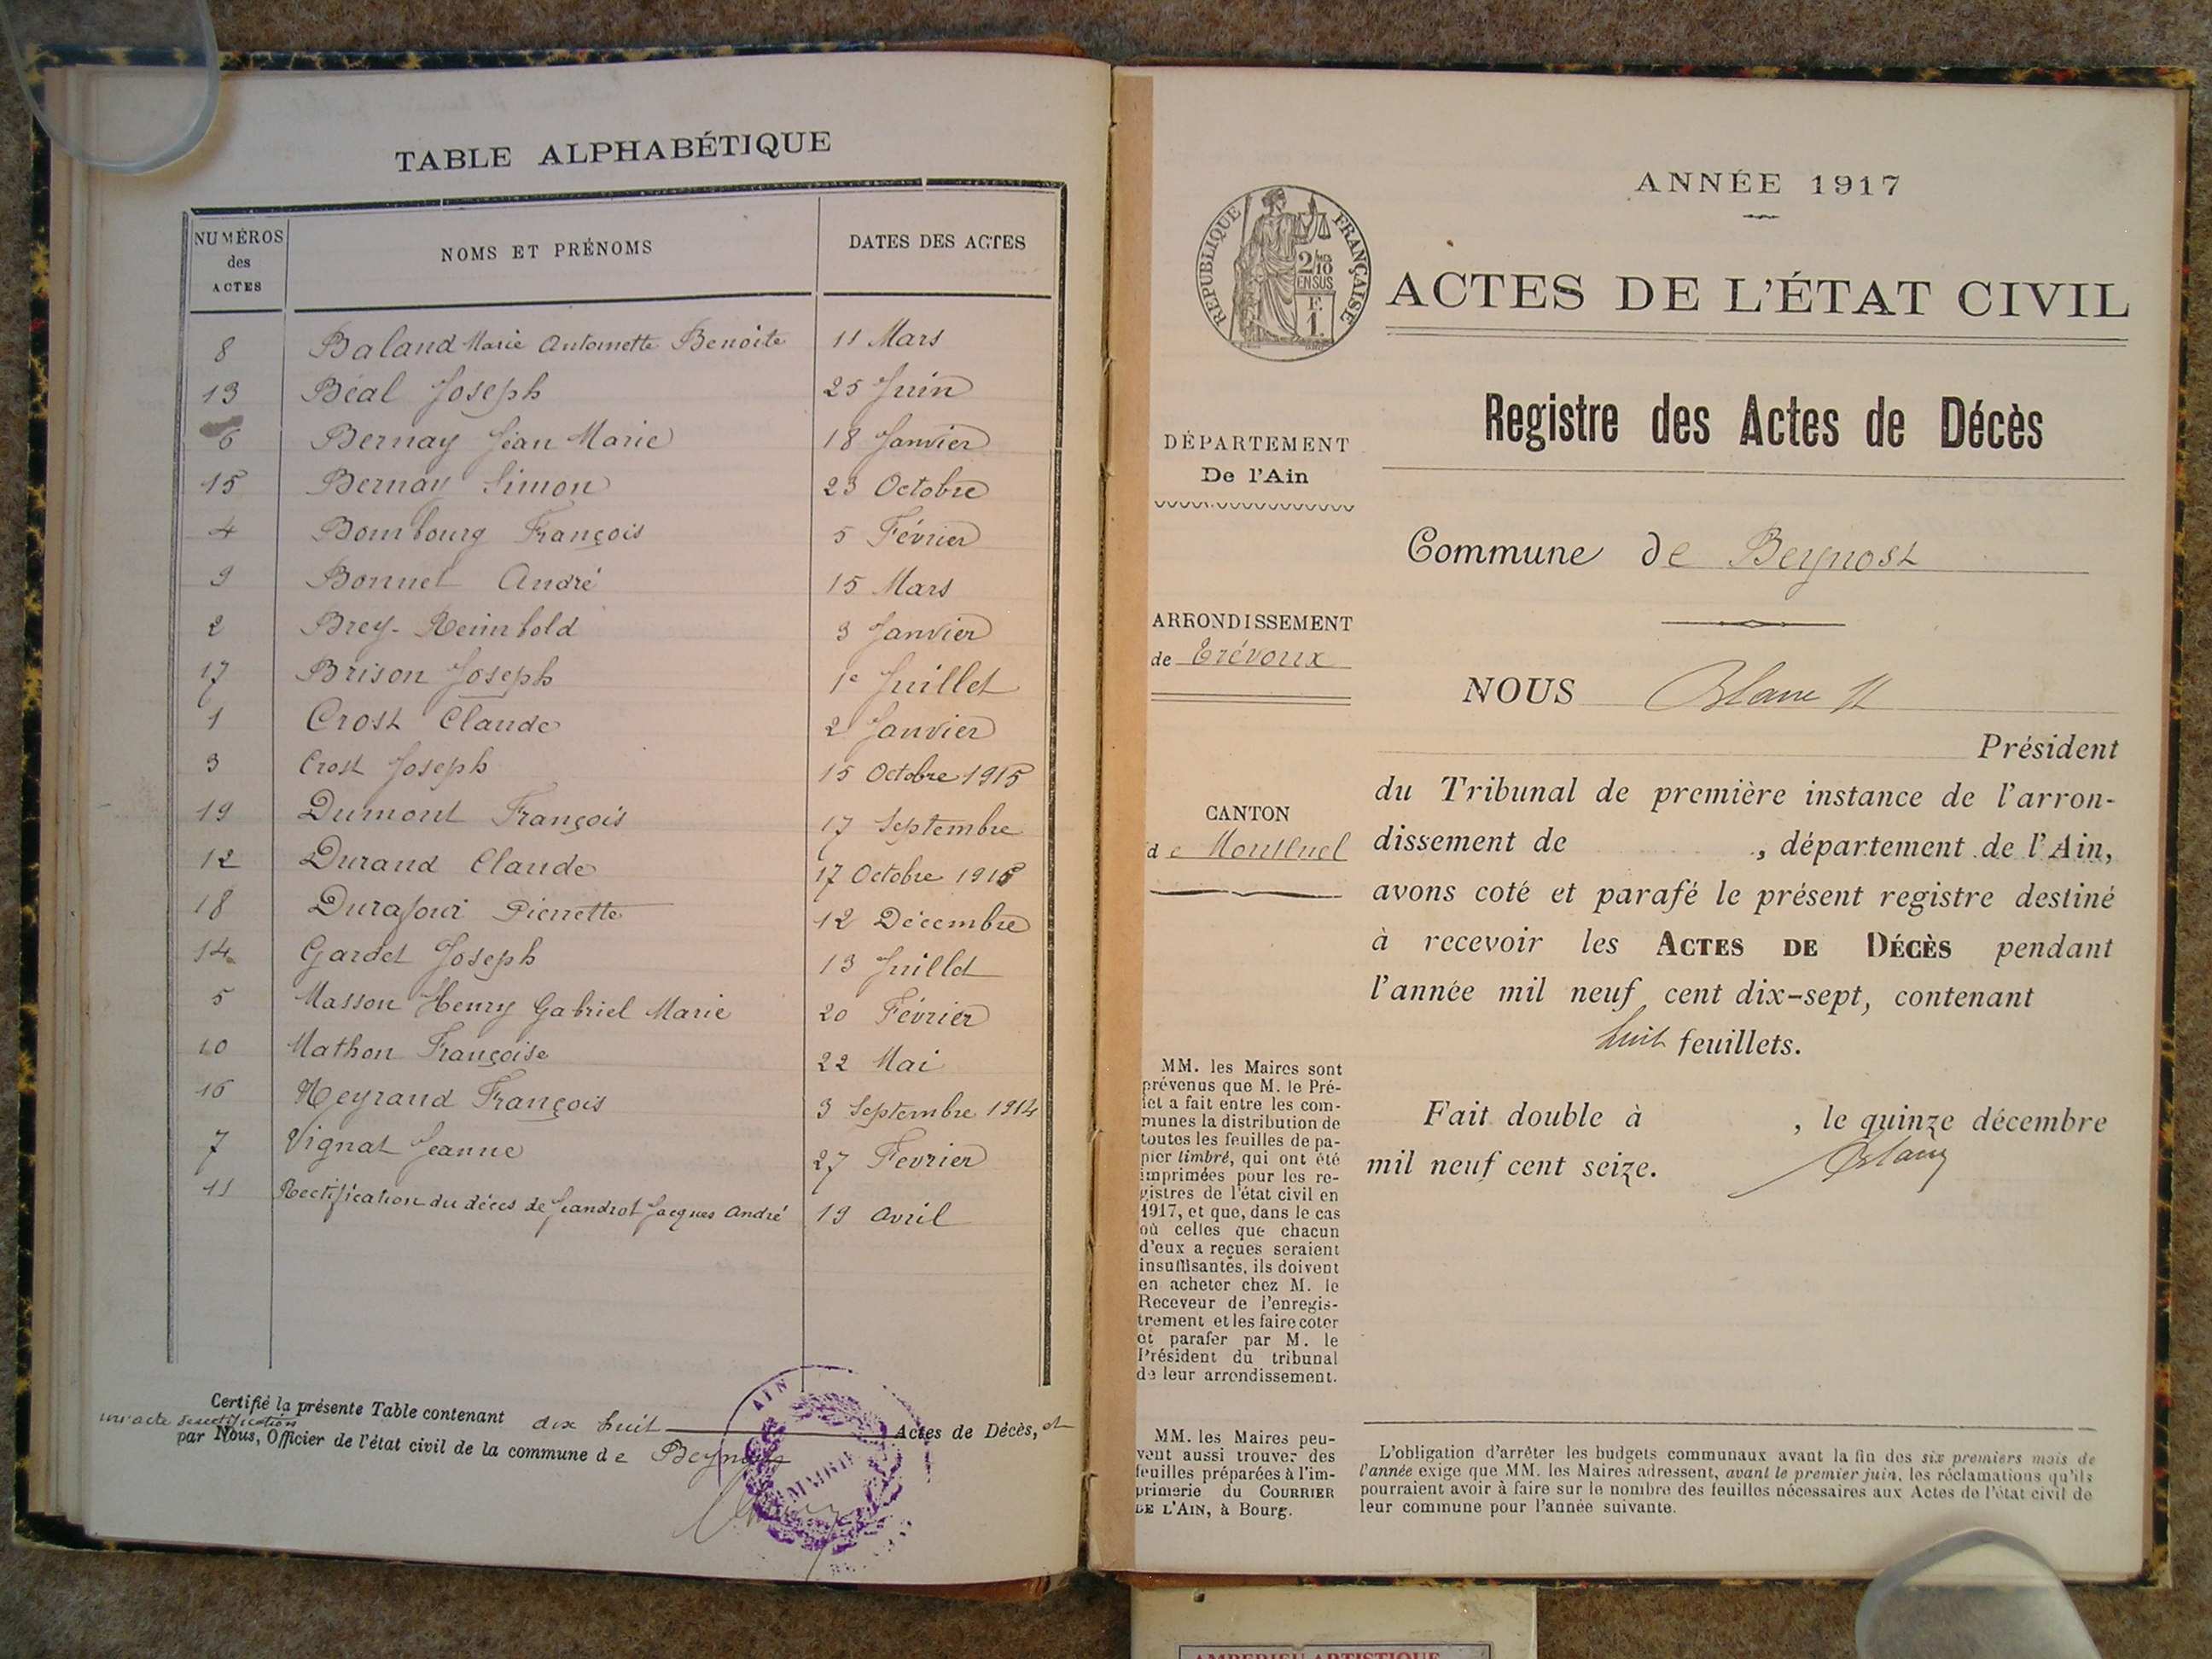 TABLE ALPHABÉTIQUE
NUMÉROS
des
ACTES
NOMS ET PRÉNOMS
DATES DES ACTES
8 Baland Marie Antoinette Benoite 11 Mars
13 Béal Joseph 25 Juin
6 Bernay Jean Marie 18 Janvier
15 Bernay Simon 23 Octobre
4 Bombourg François 5 Février
9 Bonnet André 15 Mars
2 Brey-Reimbold 3 Janvier
17 Brison Joseph 1e Juillet
1 Crost Claude 2 Janvier
3 Crost Joseph 15 Octobre 1915
19 Dumont François 17 Septembre
12 Durand Claude 17 Octobre 1915
18 Pierrette 12 Décembre
14 Gardet Joseph 13 Juillet
5 Masson Henry Gabriel Marie 20 Février
10 Mathon Françoise 22 Mai
16 Neyrand François 3 Septembre 1914
7 Vignat Jeanne 27 Fevrier
11 Rectification du décès de Jeandrot Jacques André 19 Avril
Certifié la présente Table contenant dix huit Actes de Décès, et
un acte de rectification
par Nous, Officier de l'état civil de la commune de Beynost
AIN
ANNÉE 1917
RÉPUBLIQUE FRANÇAISE
2/10
EN SUS
F.
1.
ACTES DE L'ÉTAT CIVIL
Registre des Actes de Décès
DÉPARTEMENT
De l'Ain
Commune de Beynost
ARRONDISSEMENT
de Trévoux
NOUS Blanc
Président
du Tribunal de première instance de l'arron-
CANTON
de Montluel
dissement de , département de l'Ain,
avons coté et parafé le présent registre destiné
à recevoir les ACTES DE DÉCÈS pendant
l'année mil neuf cent dix-sept, contenant
huit feuillets.
Fait double à , le quinze décembre
mil neuf cent seize.
MM. les Maires sont
prévenus que M. le Pré-
fet a fait entre les com-
munes la distribution de
toutes les feuilles de pa-
pier timbré, qui ont été
imprimées pour les re-
gistres de l'état civil en
1917, et que, dans le cas
où celles que chacun
d'eux a reçues seraient
insuffisantes, ils doivent
en acheter chez M. le
Receveur de l'enregis-
trement et les faire coter
et parafer par M. le
Président du tribunal
de leur arrondissement.
MM. les Maires peu-
vent aussi trouver des
feuilles préparées à l'im-
primerie du COURRIER
DE L'AIN, à Bourg.
L'obligation d'arrêter les budgets communaux avant la fin des six premiers mois de
l'année exige que MM. les Maires adressent, avant le premier juin, les réclamations qu'ils
pourraient avoir à faire sur le nombre des feuilles nécessaires aux Actes de l'état civil de
leur commune pour l'année suivante.
AMBERIEU ARTISTIQUE